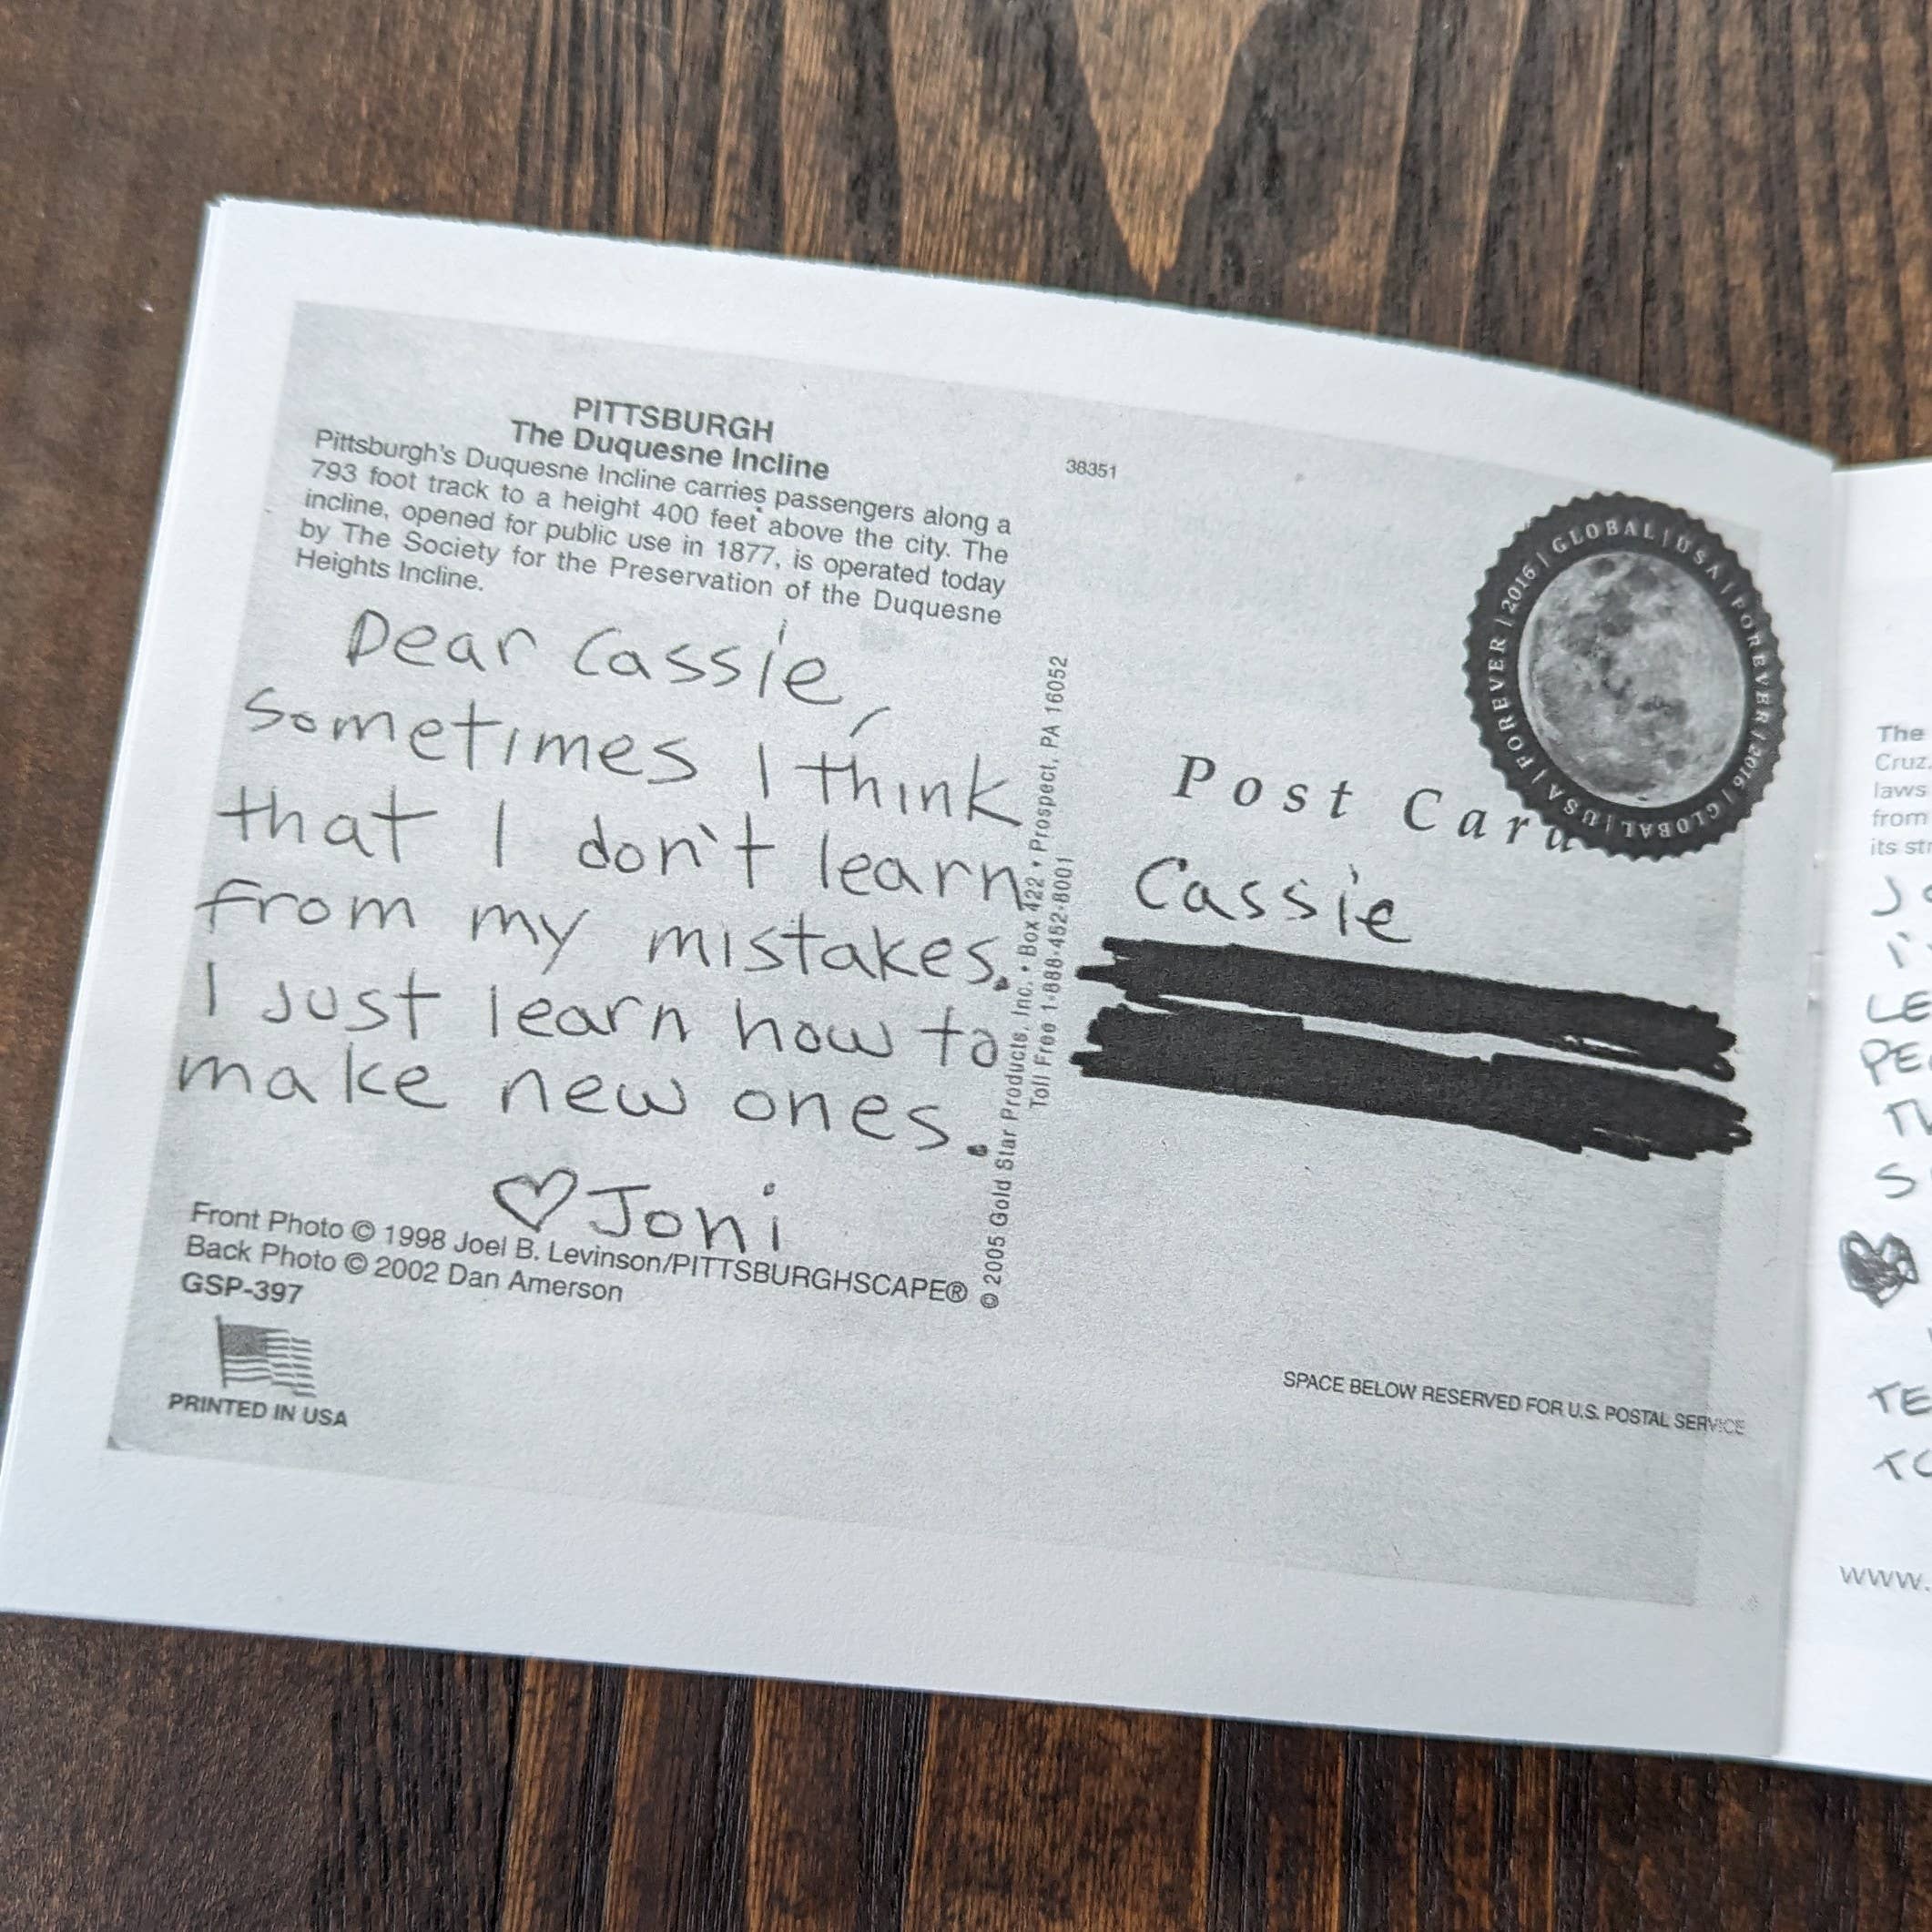 PITTSBURGH
The Duquesne Incline
Pittsburgh's Duquesne Incline carries passengers along a
793 foot track to a height 400 feet above the city. The
incline, opened for public use in 1877, is operated today
by The Society for the Preservation of the Duquesne
Heights Incline.
Dear Cassie,
Sometimes I think
that I don't learn
from my mistakes.
I just learn how to
make new ones.
♡ Joni
Front Photo © 1998 Joel B. Levinson/PITTSBURGHSCAPE®
Back Photo © 2002 Dan Amerson
GSP-397
PRINTED IN USA
© 2005 Gold Star Products, Inc. • Box 422 • Prospect, PA 16052
Toll Free 1-888-452-8001
38351
FOREVER | 2016 | GLOBAL | USA | FOREVER | 2016 | GLOBAL | USA |
Post Card
Cassie
SPACE BELOW RESERVED FOR U.S. POSTAL SERVICE
The
Cruz,
laws
from
its
LE
S
TE
www.